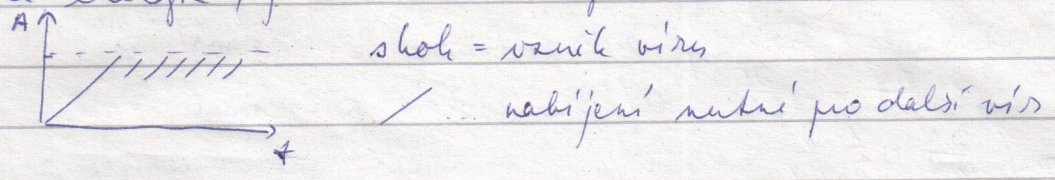 A
skok = vznik víru
/ ... nabíjení nutné pro další vír
t